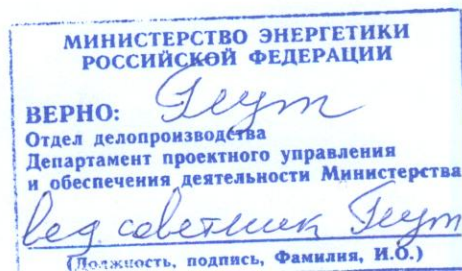 МИНИСТЕРСТВО ЭНЕРГЕТИКИ
РОССИЙСКОЙ ФЕДЕРАЦИИ
ВЕРНО:
Отдел делопроизводства
Департамент проектного управления
и обеспечения деятельности Министерства
вед советник
(Должность, подпись, Фамилия, И.О.)